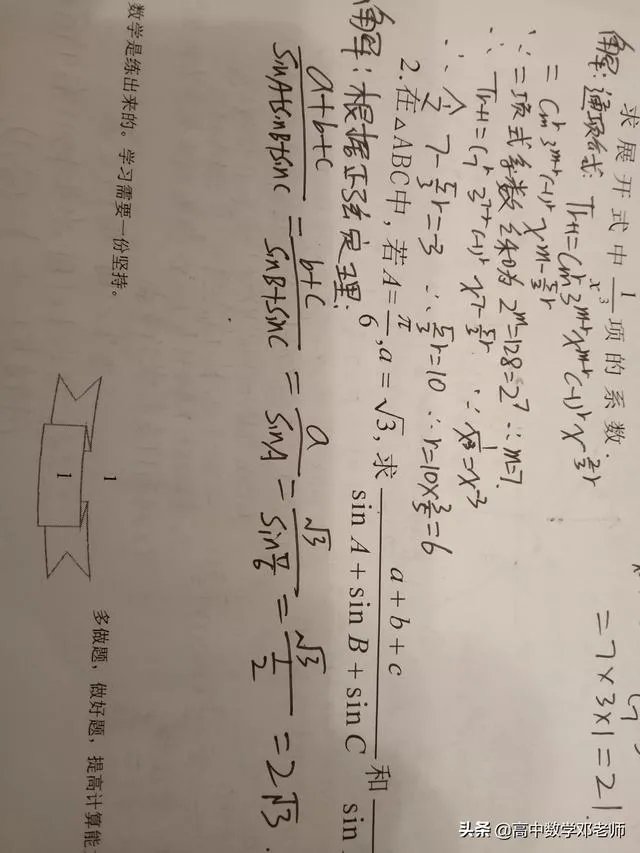 求展开式中 1/x³ 项的系数.
解:通项公式: Tr+1=Cm^r 3^(m-r) x^(m-r) (-1)^r x^(-2/3 r)
=Cm^r 3^(m-r) (-1)^r x^(m-5/3 r)
∵二项式系数之和为 2^m=128=2^7 ∴m=7.
∴ Tr+1=C7^r 3^(7-r) (-1)^r x^(7-5/3 r) ∵ 1/x³=x^-3
∴ 令 7-5/3 r=-3 ∴ 5/3 r=10 ∴r=10×3/5=6
=7×3×1=21.
2.在△ABC中,若A=π/6,a=√3,求 (a+b+c)/(sin A+sin B+sin C) 和
sin
解:根据正弦定理:
(a+b+c)/(sinA+sinB+sinC) = (b+c)/(sinB+sinC) = a/sinA = √3/(sin π/6) = √3/(1/2) = 2√3.
1
1
数学是练出来的。学习需要一份坚持。
多做题,做好题,提高计算能
头条 @高中数学邓老师